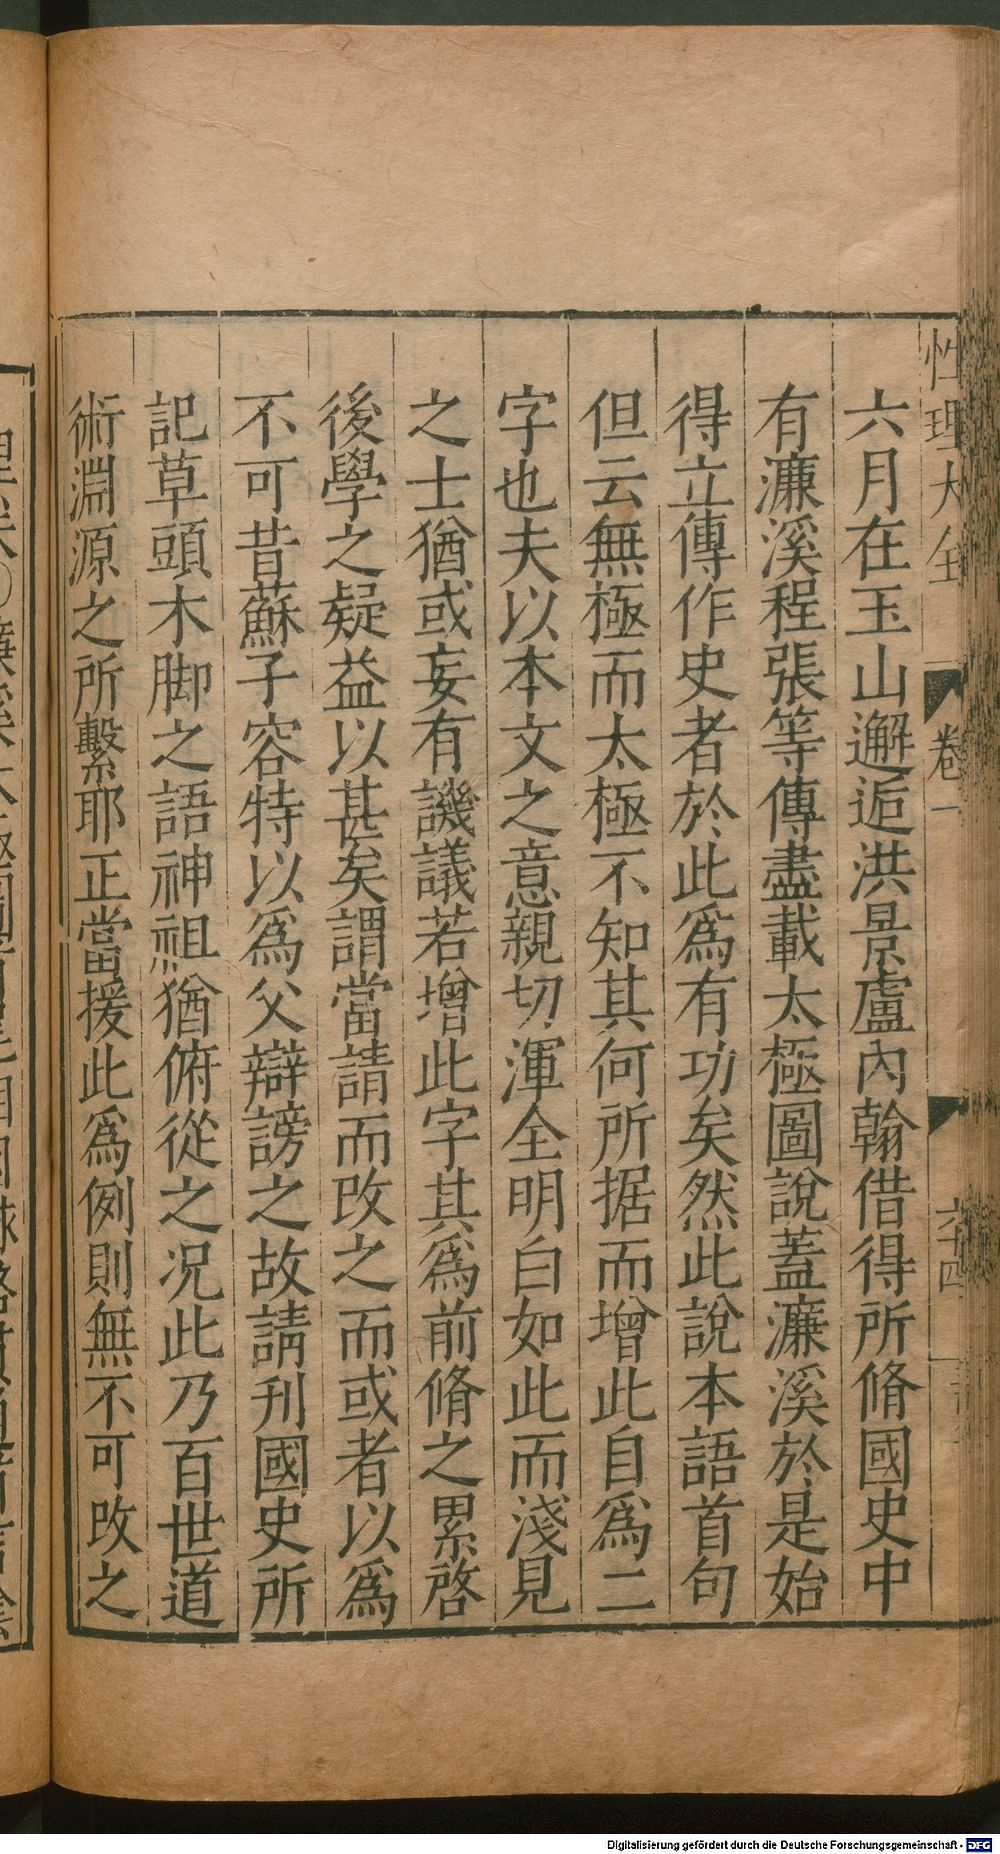 性理大全 卷一 六十四
六月在玉山邂逅洪景盧內翰借得所脩國史中
有濂溪程張等傳盡載太極圖說蓋濂溪於是始
得立傳作史者於此爲有功矣然此說本語首句
但云無極而太極不知其何所据而增此自爲二
字也夫以本文之意親切渾全明白如此而淺見
之士猶或妄有譏議若增此字其爲前脩之累啓
後學之疑益以甚矣謂當請而改之而或者以爲
不可昔蘇子容特以爲父辯謗之故請刊國史所
記草頭木脚之語神祖猶俯從之况此乃百世道
術淵源之所繫耶正當援此爲例則無不可改之
Digitalisierung gefördert durch die Deutsche Forschungsgemeinschaft - DFG